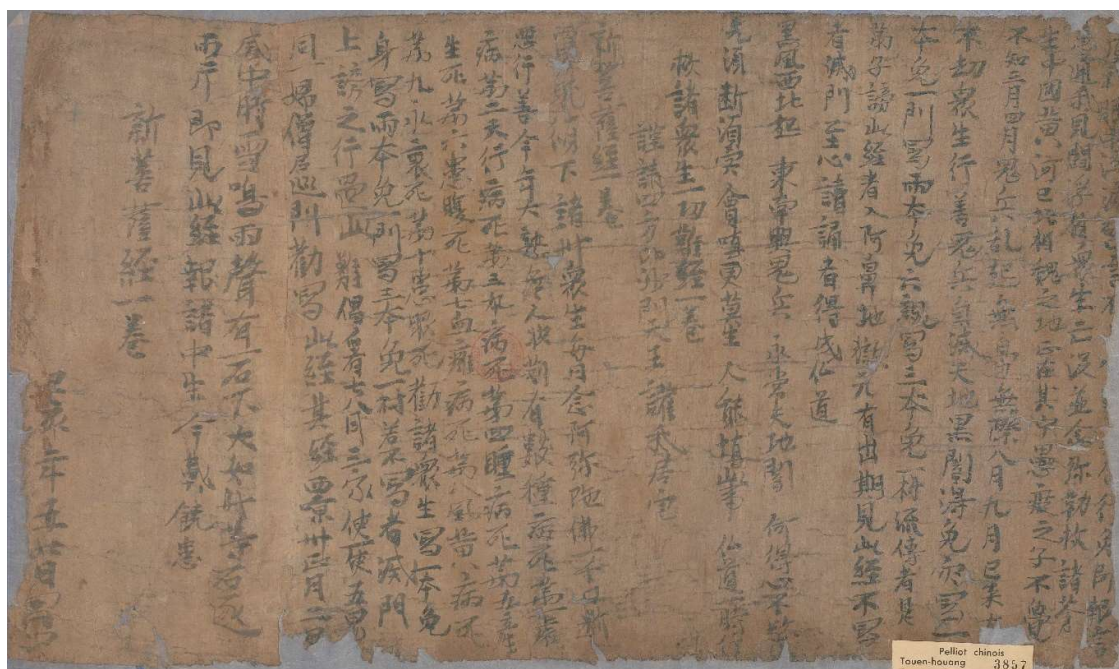 見聞 眾生亡沒並念弥勒救諸蒼
生中國黃河已北相魏之地正在其中愚癡之子不覺
不知三月四月鬼兵亂起無邊無際八月九月已來大
末劫衆生行善鬼兵自滅天地黑闇得免
本免一門寫兩本免六親寫三本免一村流傳者是
弟子謗此経者入阿鼻地獄元有出期見此経不寫
者滅門至心讀誦者得成仙道
黑風西北起 東南興鬼兵 永常天地闇 何得心不驚
先須断酒宍 貪嗔更莫生 人能慎此事 仙道一時行
救諸衆生一切難経一卷
謹請四方 門天王 護我居宅
新菩薩経一卷
賈耽頒下諸州衆生每日念阿弥陁佛一千口断
惡行善今年大熟無人收刈有數種病死第一瘧
病第二天行病死第三卒病死第四腫病死第五產
生死第六患腹死第七血癰病死第八風黄病死
第九水 死第十患眼死勸諸衆生寫一本免
身寫兩本免一門寫三本免一村若不寫者滅門
上謗之行過此難偈看七八月三家使一 五男
同一婦僧尼巡門勸寫此経其経 凉州正月二日
盛中時雷鳴雨聲有一石下大如斗等石遂
兩片即見此経報諸中生今載饒患
新菩薩経一卷
年五 廿日寫
Pelliot chinois
Touen-houang 3857